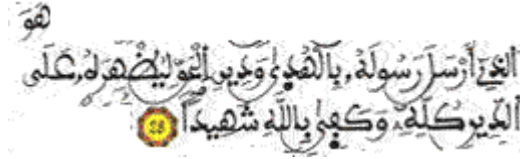 هُوَ
الَّذِے أَرْسَلَ رَسُولَهُۥ بِالْهُد۪يٰ وَدِينِ الْحَقِّ لِيُظْهِرَهُۥ عَلَي
الدِّينِ كُلِّهِۦ وَكَف۪يٰ بِاللَّهِ شَهِيداٗ 28